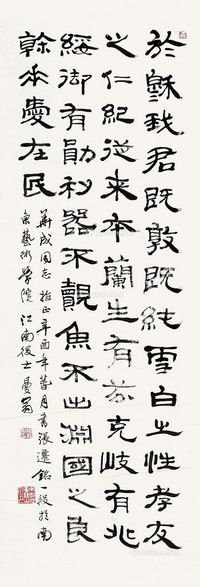 於穆我君既敦既純雪白之性孝友
之仁紀從来本蘭生有芬克岐有兆
綏御有勛利器不覿魚不出淵國之良
幹垂愛在民
華成同志指正辛酉年月書張遷銘一段於南
京藝術學院江南後士曼翁